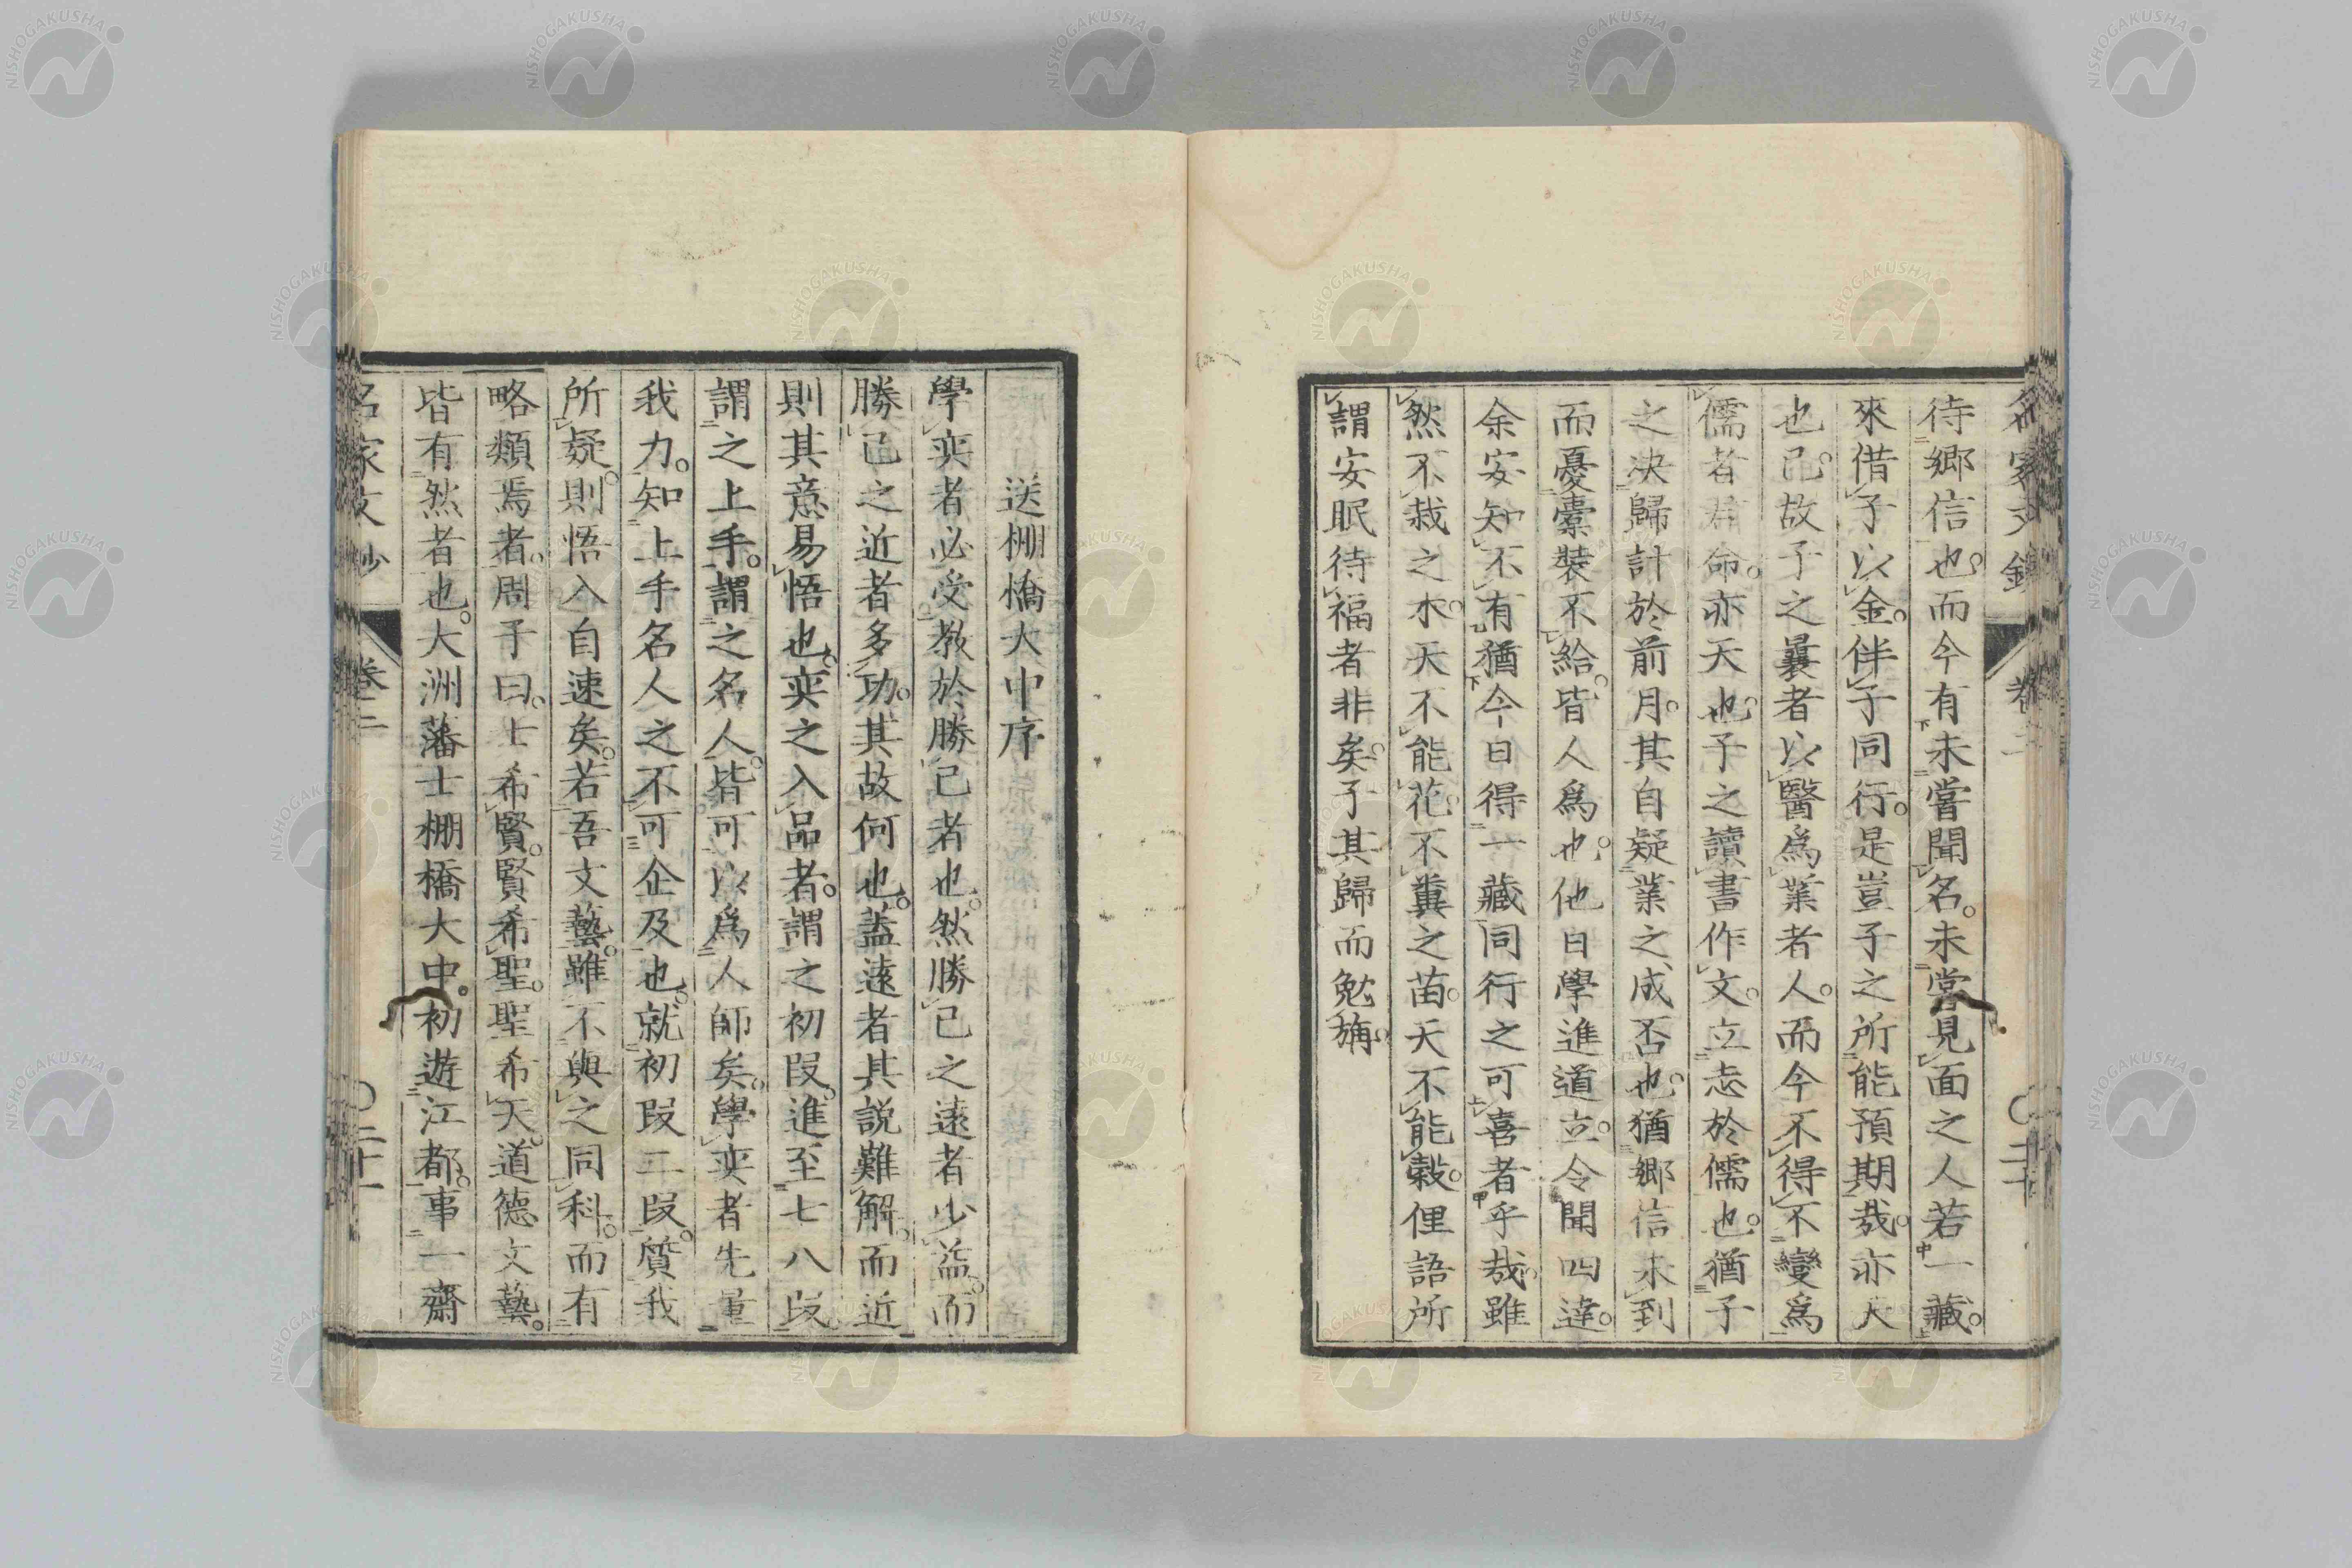 待鄉信也。而今有未嘗聞名。未嘗見面之人若一藏。
來借子以金。伴子同行。是豈子之所能預期哉。亦天
也已。故子之曩者以醫爲業者人。而今不得不變爲
儒者君命。亦天也。子之讀書作文。立志於儒也。猶子
之決歸計於前月。其自疑業之成否也。猶鄉信未到
而憂橐裝不給。皆人爲也。他日學進道立。令聞四達。
余安知不有猶今日得一藏同行之可喜者乎哉。雖
然不栽之木。天不能花。不糞之苗。天不能穀。俚語所
謂安眠待福者非矣。子其歸而勉旃。
送棚橋大中序
學奕者必受教於勝己者也。然勝己之遠者少益。而
勝己之近者多功。其故何也。蓋遠者其說難解。而近
則其意易悟也。奕之入品者。謂之初段。進至七八段
謂之上手。謂之名人。皆可以爲人師矣。學奕者先量
我力。知上手名人之不可企及也。就初段二段。質我
所疑。則悟入自速矣。若吾文藝。雖不與之同科。而有
略類焉者。周子曰。士希賢。賢希聖。聖希天。道德文藝。
皆有然者也。大洲藩士棚橋大中。初遊江都。事一齋
名家文鈔 卷二 〇二十一